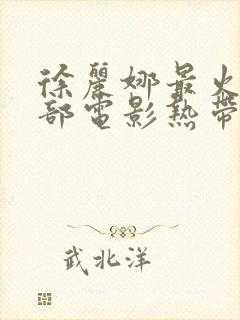 徐麗娜最火
部電影熱帶
武北洋